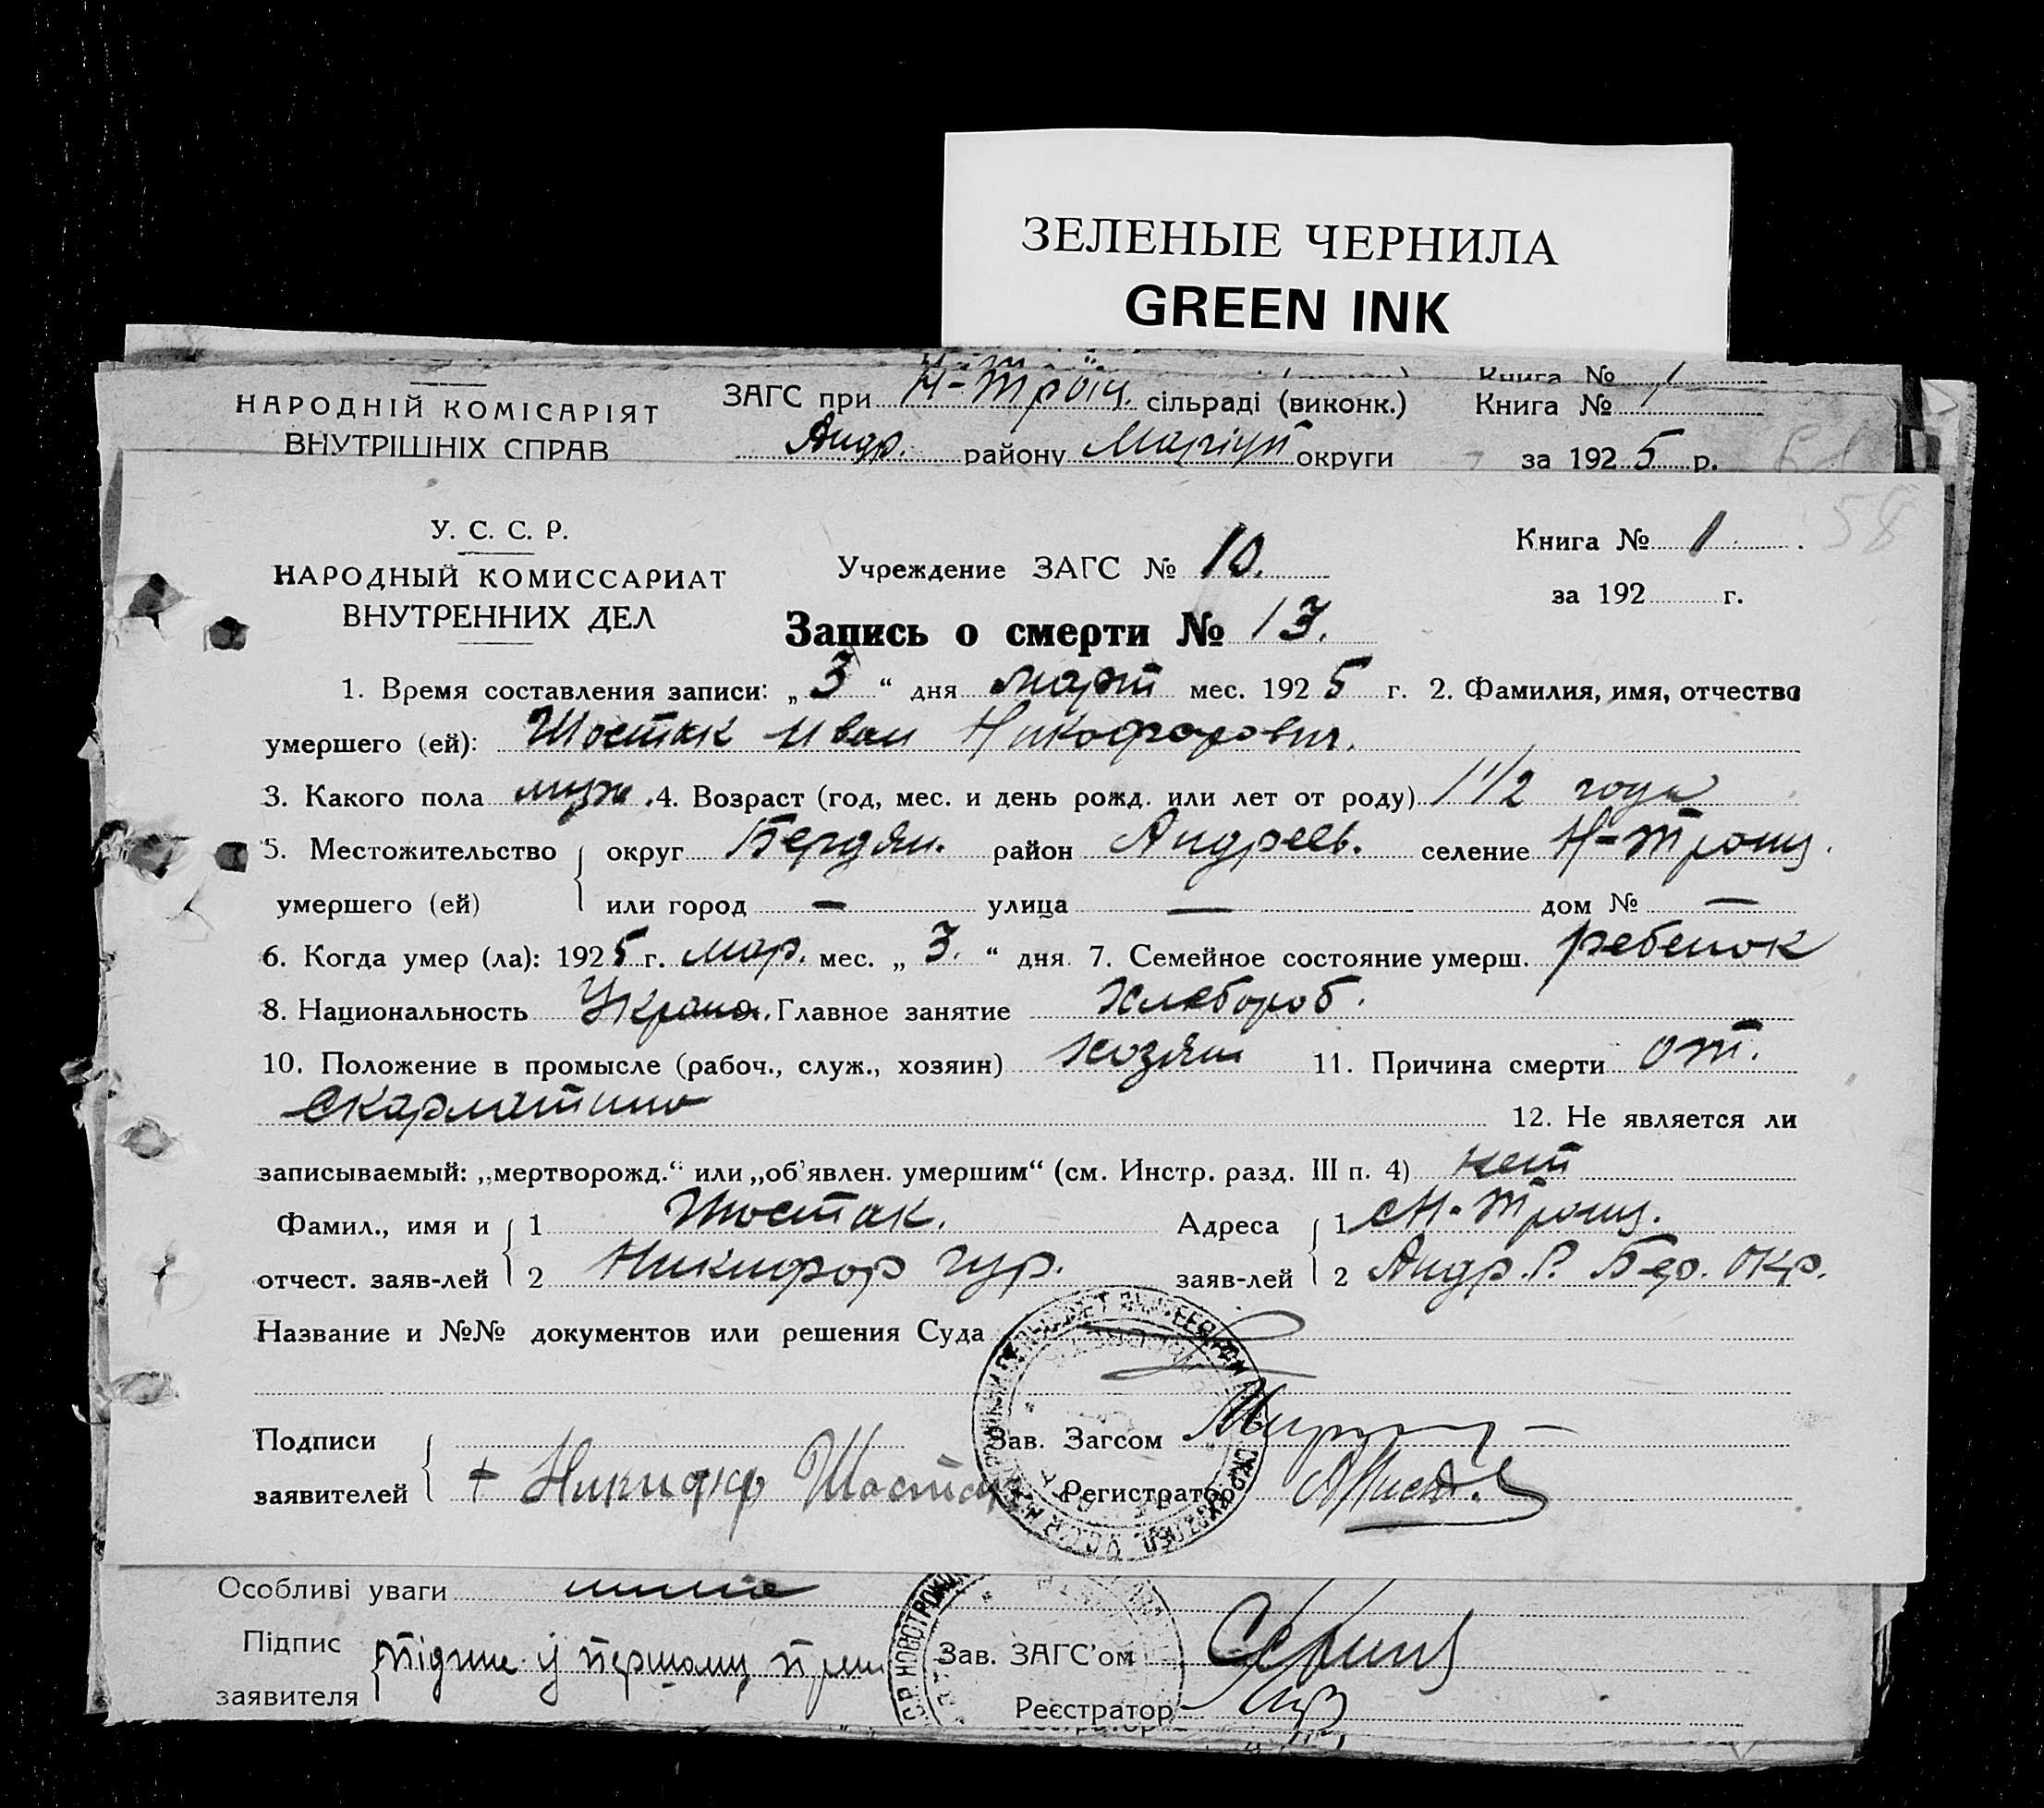 ЗЕЛЕНЫЕ ЧЕРНИЛА
GREEN INK
Книга № 1
НАРОДНІЙ КОМІСАРІЯТ ЗАГС при Н-Троїц. сільраді (виконк.) Книга №
ВНУТРІШНІХ СПРАВ Андр. району Маріуп округи за 1925 р.
58
У. С. С. Р.
Книга № 1
Учреждение ЗАГС № 10.
НАРОДНЫЙ КОМИССАРИАТ
ВНУТРЕННИХ ДЕЛ
за 192 г.
Запись о смерти № 13.
1. Время составления записи: „3“ дня март мес. 1925 г. 2. Фамилия, имя, отчество
умершего (ей): Шостак Иван Никофорович.
3. Какого пола муж. 4. Возраст (год, мес. и день рожд. или лет от роду) 1 1/2 года
5. Местожительство округ Бердян. район Андреев. селение Н-Троиц.
умершего (ей) или город — улица — дом № —
6. Когда умер (ла): 1925 г. мар. мес. „3.“ дня 7. Семейное состояние умерш. ребенок
8. Национальность Украин. Главное занятие Хлебороб.
10. Положение в промысле (рабоч., служ., хозяин) хозяин 11. Причина смерти от.
скарлатино 12. Не является ли
записываемый: „мертворожд.“ или „об'явлен. умершим“ (см. Инстр. разд. III п. 4) нет
Фамил., имя и 1 Шостак. Адреса 1 с Н-Троиц.
отчест. заяв-лей 2 Никифор Гур. заяв-лей 2 Андр. Р. Бер. Окр.
Название и №№ документов или решения Суда
Подписи Зав. Загсом
заявителей + Никифор Шостак Регистратор
Особливі уваги нима
Підпис підпис у першому прим
Зав. ЗАГС'ом
заявителя Реєстратор